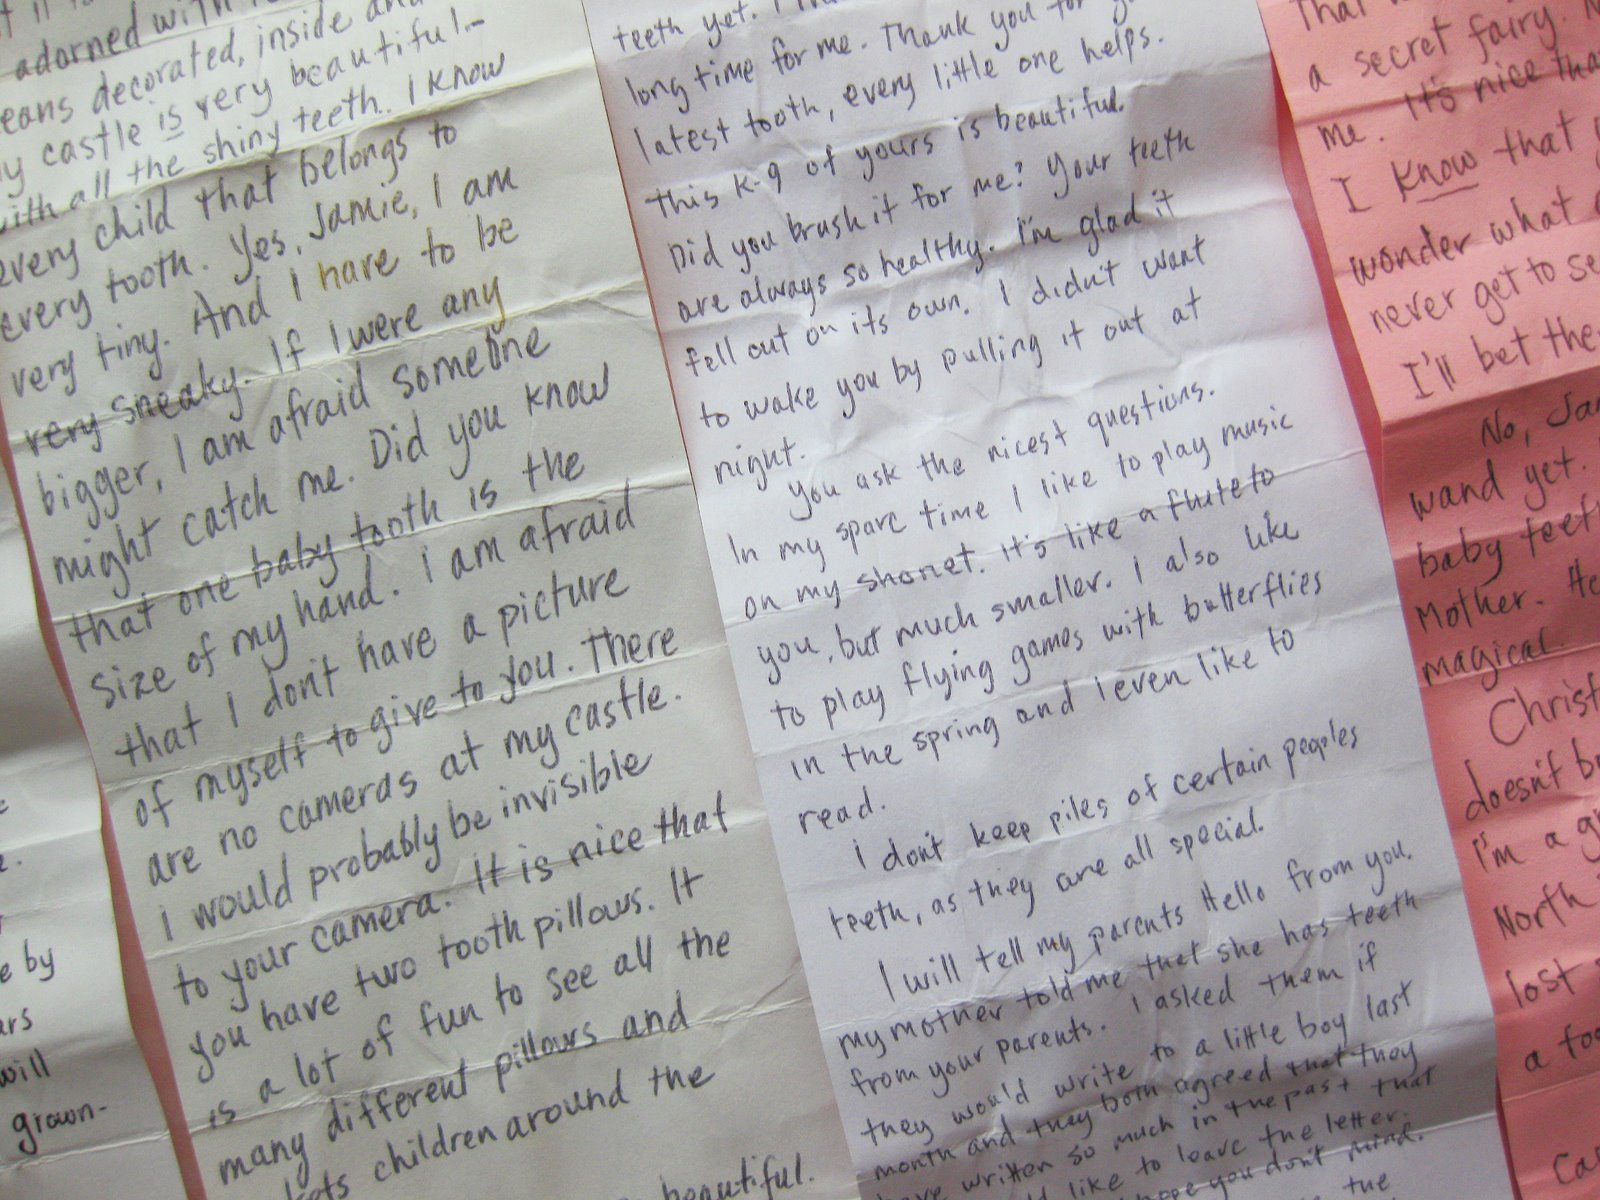 e by
ars
will
grown-
adorned with
eans decorated, inside and
y castle is very beautiful-
with all the shiny teeth. I know
every child that belongs to
every tooth. Yes, Jamie, I am
very tiny. And I have to be
very sneaky. If I were any
bigger, I am afraid someone
might catch me. Did you know
that one baby tooth is the
size of my hand. I am afraid
that I don't have a picture
of myself to give to you. There
are no cameras at my castle.
I would probably be invisible
to your camera. It is nice that
you have two tooth pillows. It
is a lot of fun to see all the
many different pillows and
kets children around the
beautiful.
teeth yet.
long time for me. Thank you for
latest tooth, every little one helps.
this K-9 of yours is beautiful.
Did you brush it for me? Your teeth
are always so healthy. I'm glad it
fell out on its own. I didn't want
to wake you by pulling it out at
night.
You ask the nicest questions.
In my spare time I like to play music
on my shonet. It's like a flute to
you, but much smaller. I also like
to play flying games with butterflies
in the spring and I even like to
read.
I don't keep piles of certain peoples
teeth, as they are all special.
I will tell my parents Hello from you.
my mother told me that she has teeth
from your parents. I asked them if
they would write to a little boy last
month and they both agreed that they
have written so much in the past that
like to leave the letter-
hope you don't mind.
the
That
a secret fairy.
me. It's nice tha
I know that y
wonder what
never get to se
I'll bet the
No, Ja
wand yet.
baby teet
Mother. He
magical.
Christ
doesn't b
I'm a g
North
lost
a too